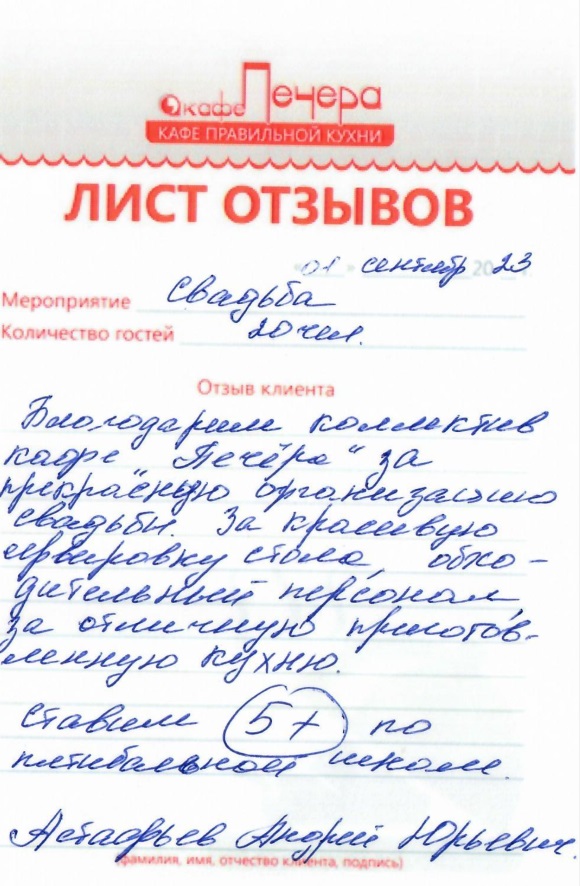 кафе Печера
КАФЕ ПРАВИЛЬНОЙ КУХНИ
ЛИСТ ОТЗЫВОВ
«01» сентябр 2023 г.
Мероприятие Свадьба
Количество гостей 20 чел.
Отзыв клиента
Благодарим коллектив
кафе "Печёра" за
прекрасную организацию
свадьбы. За красивую
сервировку стола, обхо-
дительный персонал,
за отличную приготов-
ленную кухню.
ставим 5+ по
пятибальной школе.
Астафьев Андрей Юрьевич.
(фамилия, имя, отчество клиента, подпись)